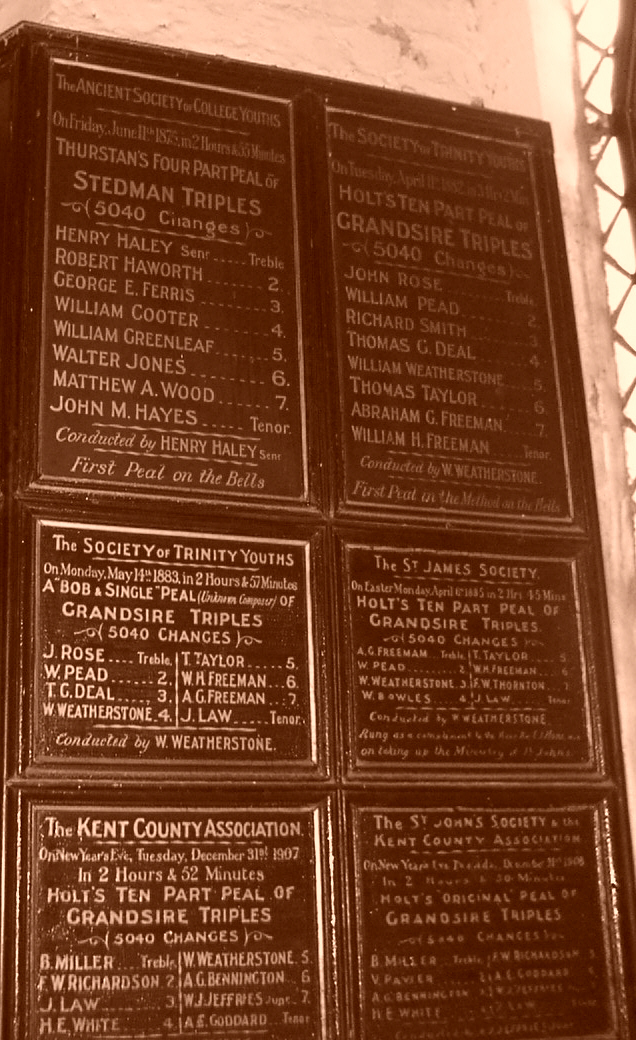 The ANCIENT SOCIETY of COLLEGE YOUTHS
On Friday, June 11th 1875, in 2 Hours & 55 Minutes
THURSTAN'S FOUR PART PEAL OF
STEDMAN TRIPLES
(5040 Changes)
HENRY HALEY Senr ..... Treble
ROBERT HAWORTH ........ 2.
GEORGE E. FERRIS ........ 3.
WILLIAM COOTER ........ 4.
WILLIAM GREENLEAF ...... 5.
WALTER JONES ........ 6.
MATTHEW A. WOOD ........ 7.
JOHN M. HAYES ...... Tenor.
Conducted by HENRY HALEY Senr
First Peal on the Bells
The SOCIETY of TRINITY YOUTHS
On Tuesday, April 11th 1882, in 3 Hrs 2 Min
HOLT'S TEN PART PEAL OF
GRANDSIRE TRIPLES
(5040 Changes)
JOHN ROSE ........ Treble
WILLIAM PEAD ........ 2.
RICHARD SMITH ........ 3.
THOMAS G. DEAL ........ 4.
WILLIAM WEATHERSTONE .. 5.
THOMAS TAYLOR ........ 6.
ABRAHAM G. FREEMAN ..... 7.
WILLIAM H. FREEMAN ..... Tenor.
Conducted by W. WEATHERSTONE.
First Peal in the Method on the Bells
The SOCIETY OF TRINITY YOUTHS
On Monday, May 14th 1883, in 2 Hours & 57 Minutes
A "BOB & SINGLE" PEAL (Unknown Composer) OF
GRANDSIRE TRIPLES
(5040 CHANGES)
J. ROSE .... Treble. T. TAYLOR ..... 5.
W. PEAD ........ 2. W.H. FREEMAN ... 6.
T. G. DEAL ...... 3. A.G. FREEMAN .... 7.
W. WEATHERSTONE. 4. J. LAW ..... Tenor.
Conducted by W. WEATHERSTONE.
The ST JAMES SOCIETY.
On Easter Monday, April 6th 1885 in 2 Hrs 45 Mins
HOLT'S TEN PART PEAL OF
GRANDSIRE TRIPLES.
(5040 CHANGES)
A.G. FREEMAM Treble. T. TAYLOR ..... 5
W. PEAD ........ 2. W.H. FREEMAN ... 6
W. WEATHERSTONE. 3. F.W. THORNTON .. 7
W. BOWLES ..... 4. J. LAW ..... Tenor
Conducted by W. WEATHERSTONE
Rung as a compliment to the
on taking up the Ministry of St Johns.
The KENT COUNTY ASSOCIATION.
On New Year's Eve, Tuesday, December 31st 1907
In 2 Hours & 52 Minutes
HOLT'S TEN PART PEAL OF
GRANDSIRE TRIPLES
(5040 CHANGES)
B. MILLER ... Treble. W. WEATHERSTONE 5.
F. W. RICHARDSON 2. A.G. BENNINGTON 6
J. LAW ........ 3. W.J. JEFFRIES Junr. 7.
H.E. WHITE .... 4. A.E. GODDARD Tenor
The ST JOHN'S SOCIETY & the
KENT COUNTY ASSOCIATION
On New Years Eve
In 2 Hours & 50 Minutes
HOLT'S 'ORIGINAL' PEAL OF
GRANDSIRE TRIPLES
(5040 CHANGES)
B. MILLER Treble. F.W. RICHARDSON
A.E. GODDARD
A.G. BENNINGTON W.J. JEFFRIES
H.E. WHITE J. LAW